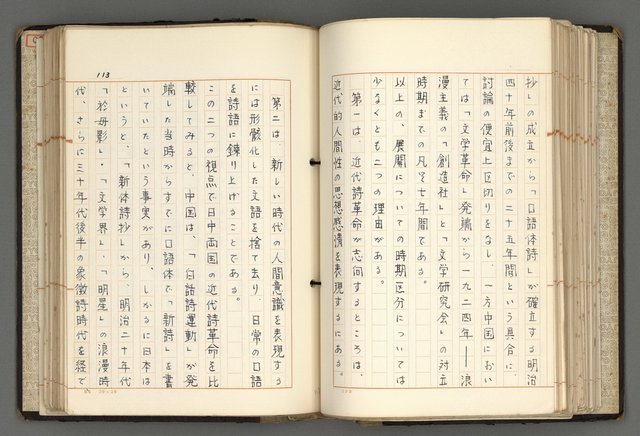 抄」の成立から「口語体詩」が確立する明治
四十年前後までの二十五年間という具合に、
討論の便宜上区切りをなし、一方中国におい
ては「文学革命」発端から一九二四年——浪
漫主義の「創造社」と「文学研究会」の対立
時期までの凡そ七年間である。
以上の、展開についての時期区分については
少なくとも二つの理由がある。
第一は、近代詩革命が志向するところは、
近代的人間性の思想感情を表現するにある。
113
第二は、新しい時代の人間意識を表現する
には形骸化した文語を捨て去り、日常の口語
を詩語に錬り上げることである。
この二つの視点で日中両国の近代詩革命を比
較してみると、中国は、「白話詩運動」が発
端した当時からすでに口語体で「新詩」を書
いていたという事実があり、しかるに日本は
というと、「新体詩抄」から、明治二十年代
「於母影」・「文学界」・「明星」の浪漫時
代、さらに三十年代後半の象徴詩時代を経て